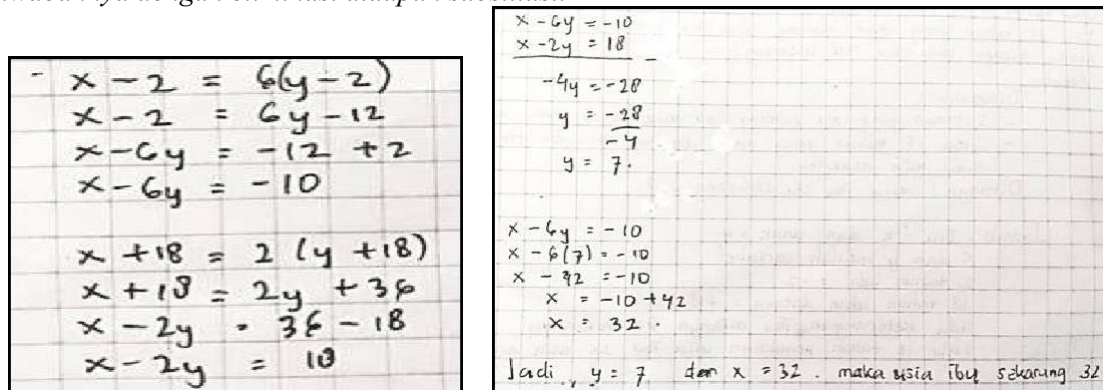 - x - 2 = 6(y - 2)
x - 2 = 6y - 12
x - 6y = -12 + 2
x - 6y = -10
x + 18 = 2 (y + 18)
x + 18 = 2y + 36
x - 2y = 36 - 18
x - 2y = 18
x - 6y = -10
x - 2y = 18
-4y = -28
y = -28
-4
y = 7.
x - 6y = -10
x - 6(7) = -10
x - 42 = -10
x = -10 + 42
x = 32.
Jadi, y = 7 dan x = 32. maka usia ibu sekarang 32